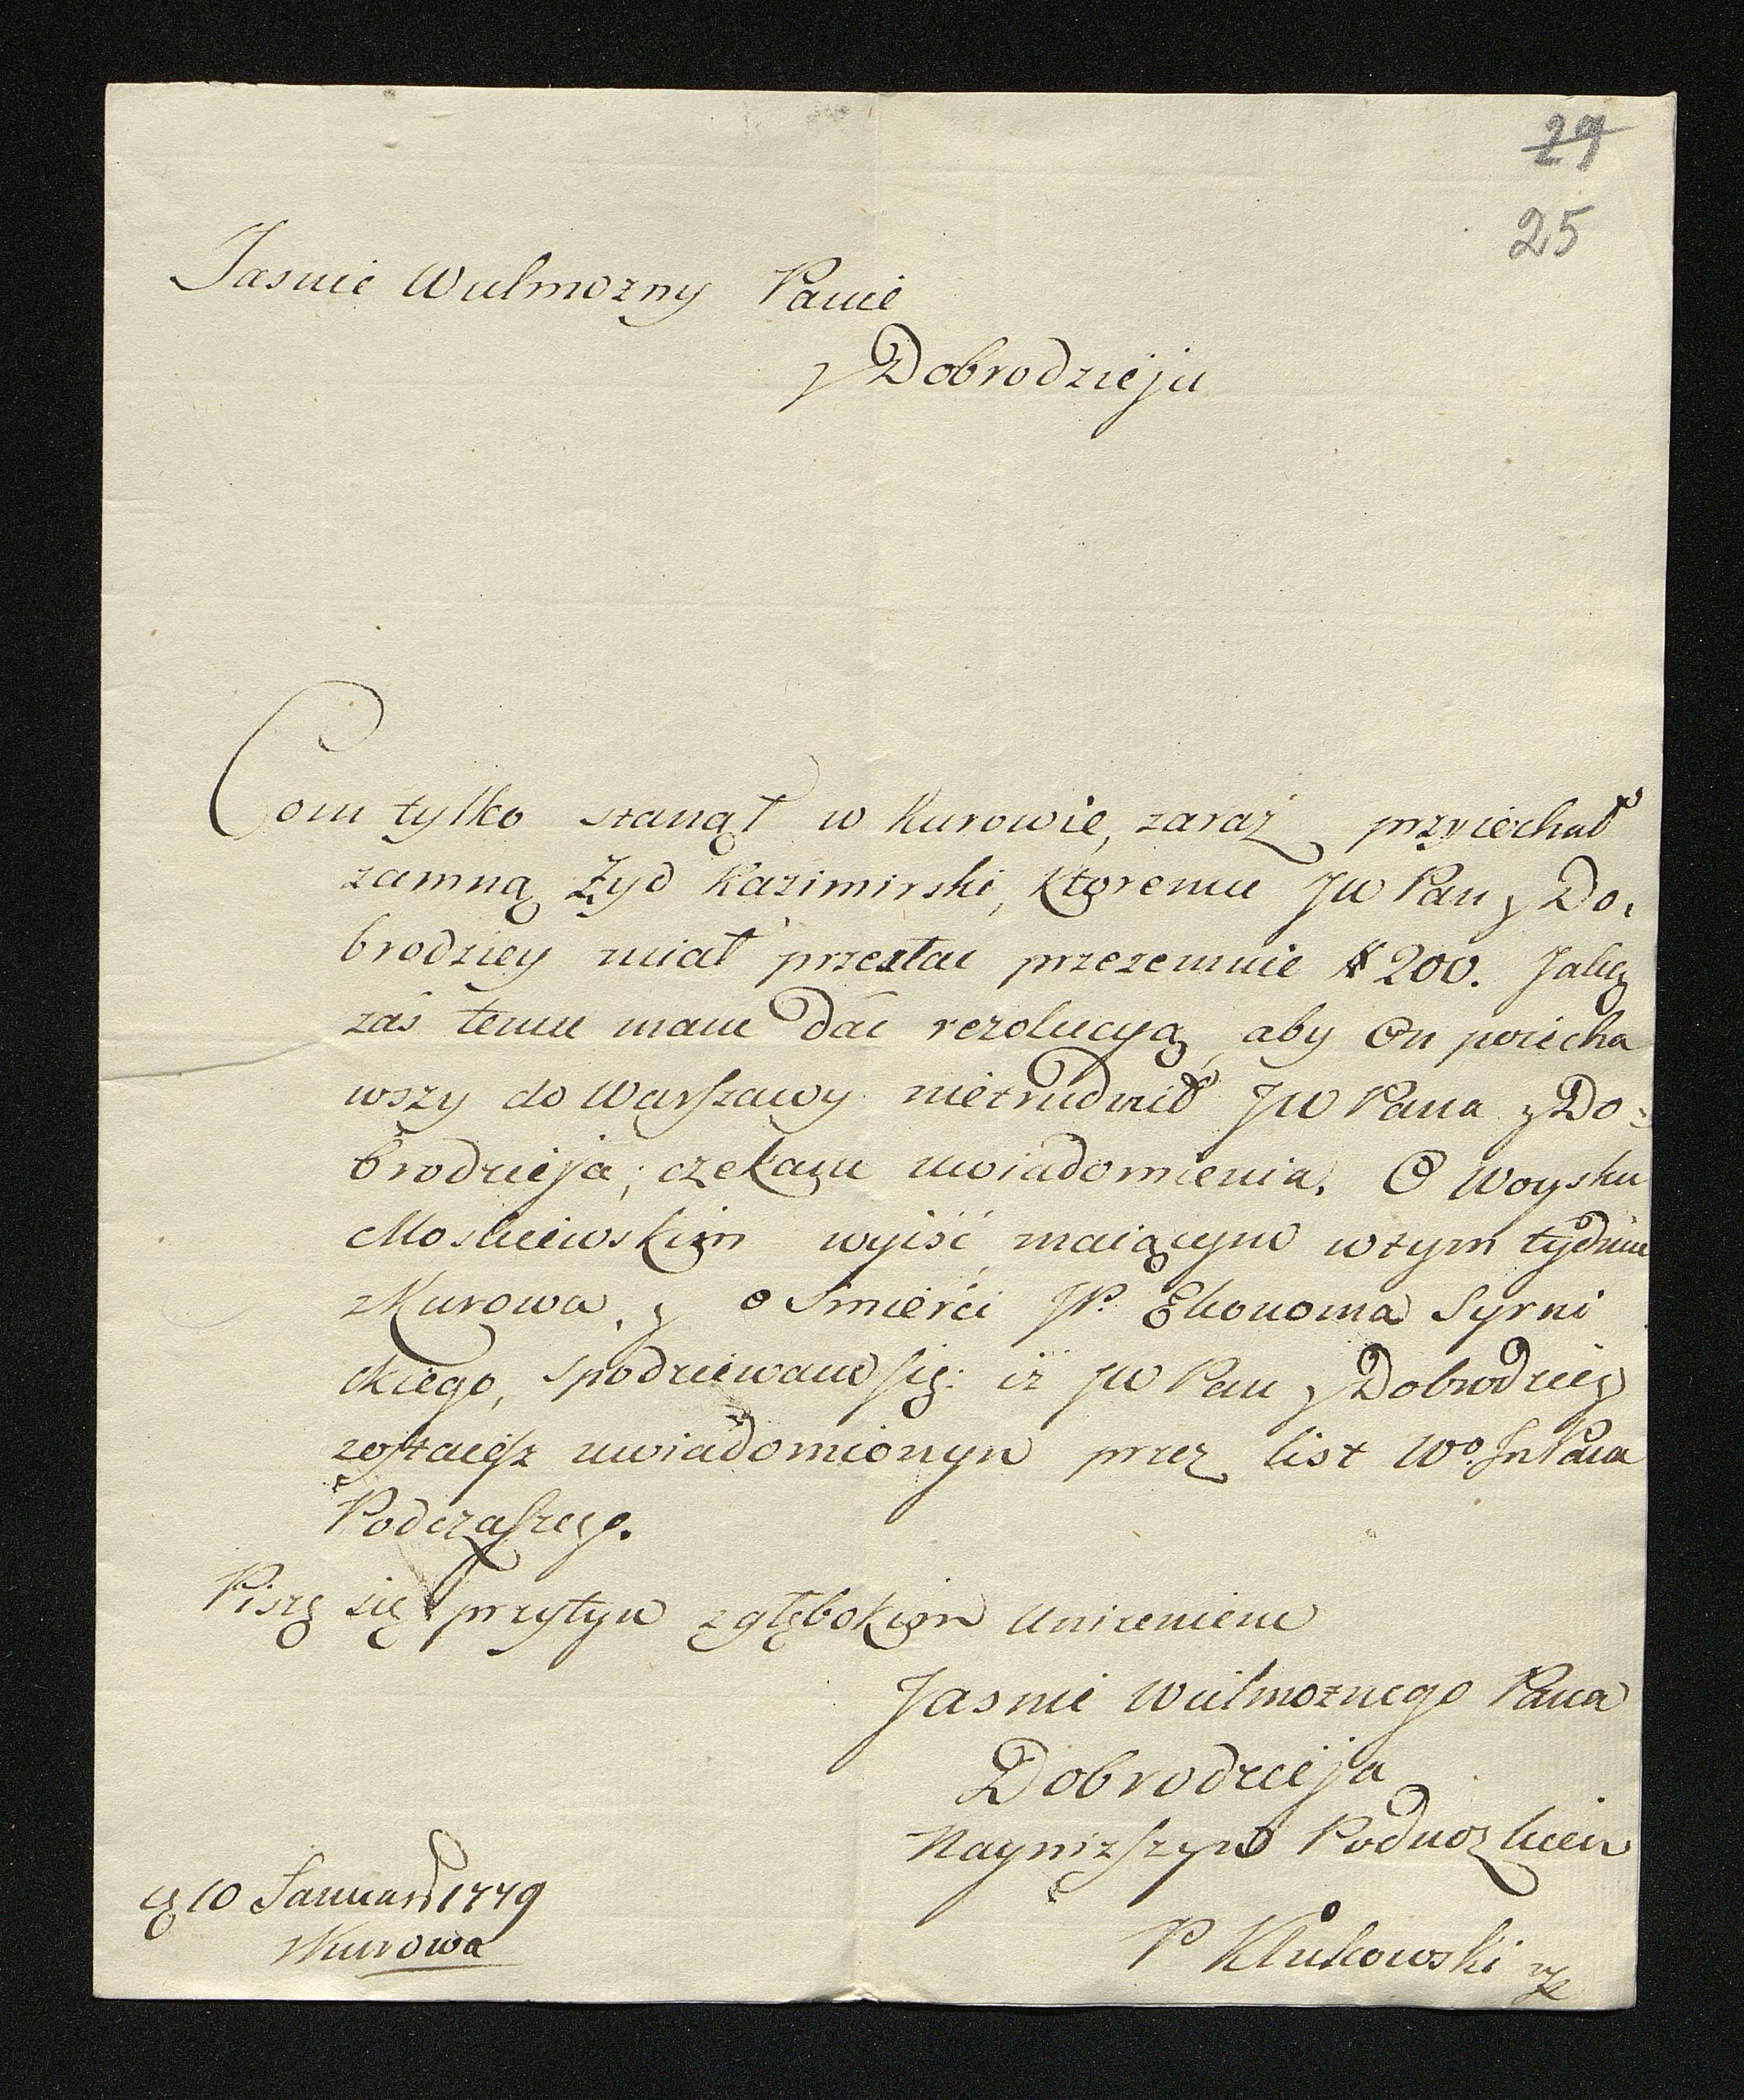 29
25
Jasnie Wielmozny Panie
y Dobrodzieju
Com tylko stanął w Kurowie, zaraz przyiechał
zamną Żyd Kazimirski, ktoremu JW Pan y Do,
brodziey miał przesłac przezemnie # 200. Jaką
zaś temu mam dać rezolucyą, aby On poiecha
wszy do Warszawy nietrudnił JW Pana y Do:
brodzieja, czekam uwiadomienia. O Woysku
Moskiewskim wyiść maiącym wtym tydniu
zKurowa, y o Smierci JP. Ekonoma Syrni
ckiego, spodziewam się: iż JW Pan y Dobrodziey
zostaiesz uwiadomionym przez list Wo. Jm Pana
Podczaszego.
Piszę się przytym zgłębokim unizeniem
Jasnie Wielmożnego Pana
Dobrodzieja
Nayniższym Podnozkiem
P Klukowski
10 Januarii 1779
zKurowa